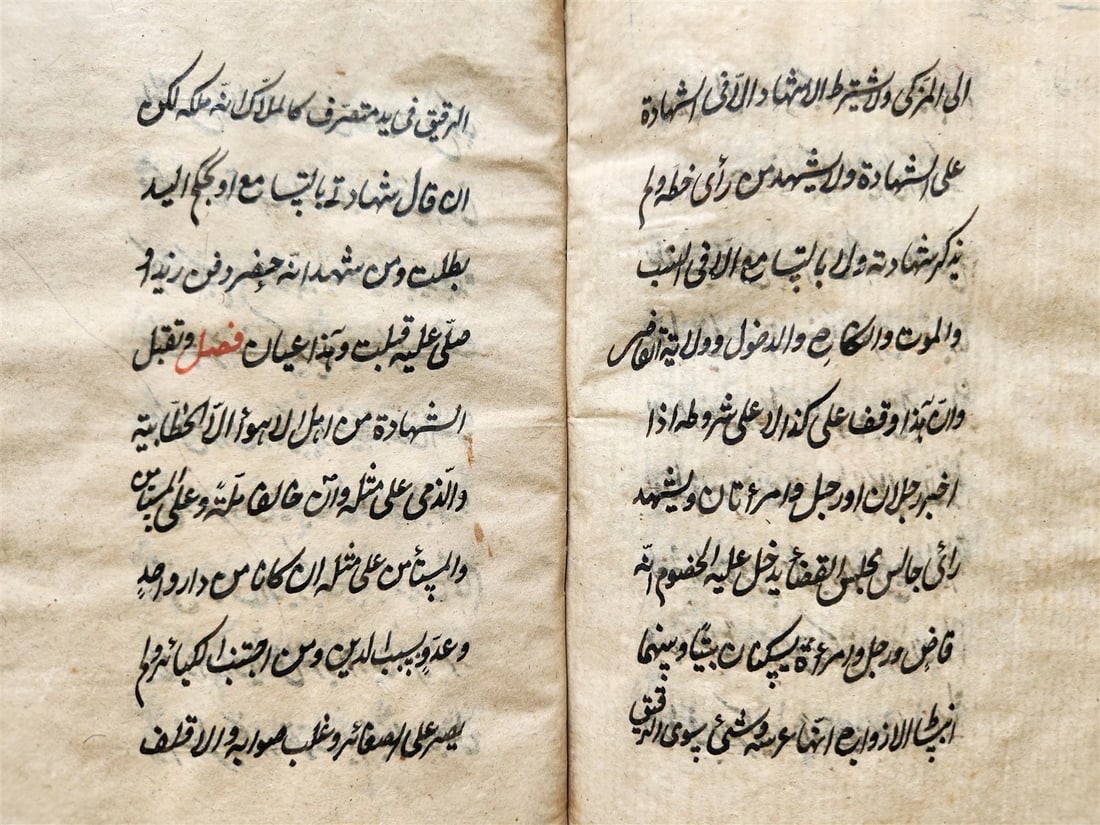 الى المزكى ولا يشترط الاشهاد الا فى الشهادة
على الشهادة ولا يشهد من رأى خطه ولم
يذكر شهادته ولا بالتسامع الا فى النسب
والموت والنكاح والدخول وولاية القاضى
وان هذا وقف على كذا لا على شروطه اذا
اخبر رجلان او رجل وامرءتان ويشهد
رائى جالس مجلس القضاء يدخل عليه الخصوم انه
قاض ورجل وامرءة يسكنان بيتا وبينهما
انبساط الازواج انها عرسه وشئ سوى الرقيق
الرقيق فى يد متصرف كالملاك انه ملكه لكن
ان قال شهادتى بالتسامع او بحكم اليد
بطلت ومن شهد انه حضر دفن زيد او
صلى عليه قبلت وهذا عيان فصل وتقبل
الشهادة من اهل الاهوأ الا الخطابية
والذمى على مثله وان خالفا ملة وعلى المستأمن
والمستأمن على مثله ان كانا من دار واحد
وعدو بسبب الدين ومن اجتنب الكبائر ولم
يصر على الصغائر وغلب صوابه والاقلف